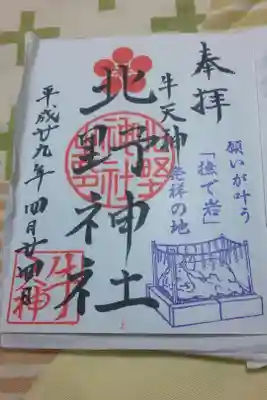 奉拝
願いが叶う
「撫で岩」
発祥の地
牛天神
北野神社
平成廿九年四月廿四日
牛天神